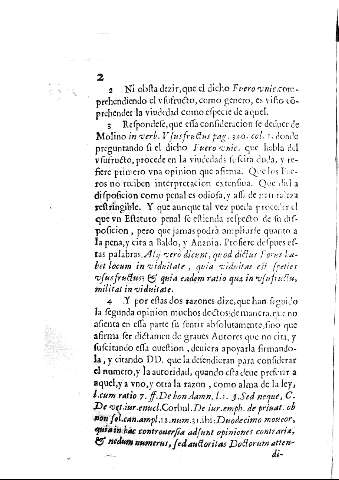 2
2 Ni obsta dezir, que el dicho Fuero vnic. com-
prehendiendo el vsufructo, como genero, es visto cō-
prehender la viudedad como especie de aquel.
3 Respondese, que essa consideracion se deduce de
Molino in verb. Vsusfructus pag. 320. col. 1. donde
preguntando si el dicho Fuero vnic. que habla del
vsufructo, procede en la viudedad, suscita duda, y re-
fiere primero vna opinion que afirma. Que los Fue-
ros no reciben interpretacion extensiua. Que dicha
disposicion como penal es odiosa, y assi de naturaleza
restringible. Y que aunque tal vez pueda proceder el
que vn Estatuto penal se estienda respecto de su dis-
posicion, pero que jamas podrá ampliarse quanto a
la pena, y cita a Baldo, y Anania. Refiere despues es-
tas palabras. Alij verò dicunt, quod dictus Forus ha-
bet locum in viduitate, quia viduitas est species
vsusfructus: & quia eadem ratio qua in vsufructu,
militat in viduitate.
4 Y por estas dos razones dize, que han seguido
la segunda opinion muchos doctos de manera, que no
assienta en esta parte su sentir absolutamente, sino que
afirma ser dictamen de graues Autores que no cita, y
suscitando essa question, deuiera apoyarla firmando-
la, y citando DD. que la defendieran para considerar
el numero, y la autoridad, quando esta deue preferir a
aquel, y a vno, y otra la razon, como alma de la ley,
l. cum ratio 7. ff. De bon. damn. l. 1. §. Sed neque, C.
De vet. iur. enucl. Corbul. De iur. emph. de priuat. ob
non sol. can. ampl. 12. num. 31. ibi: Duodecimo moueor,
quia in hac controuersia adsunt opiniones contrariæ,
& nedum numerus, sed auctoritas Doctorum atten-
di-